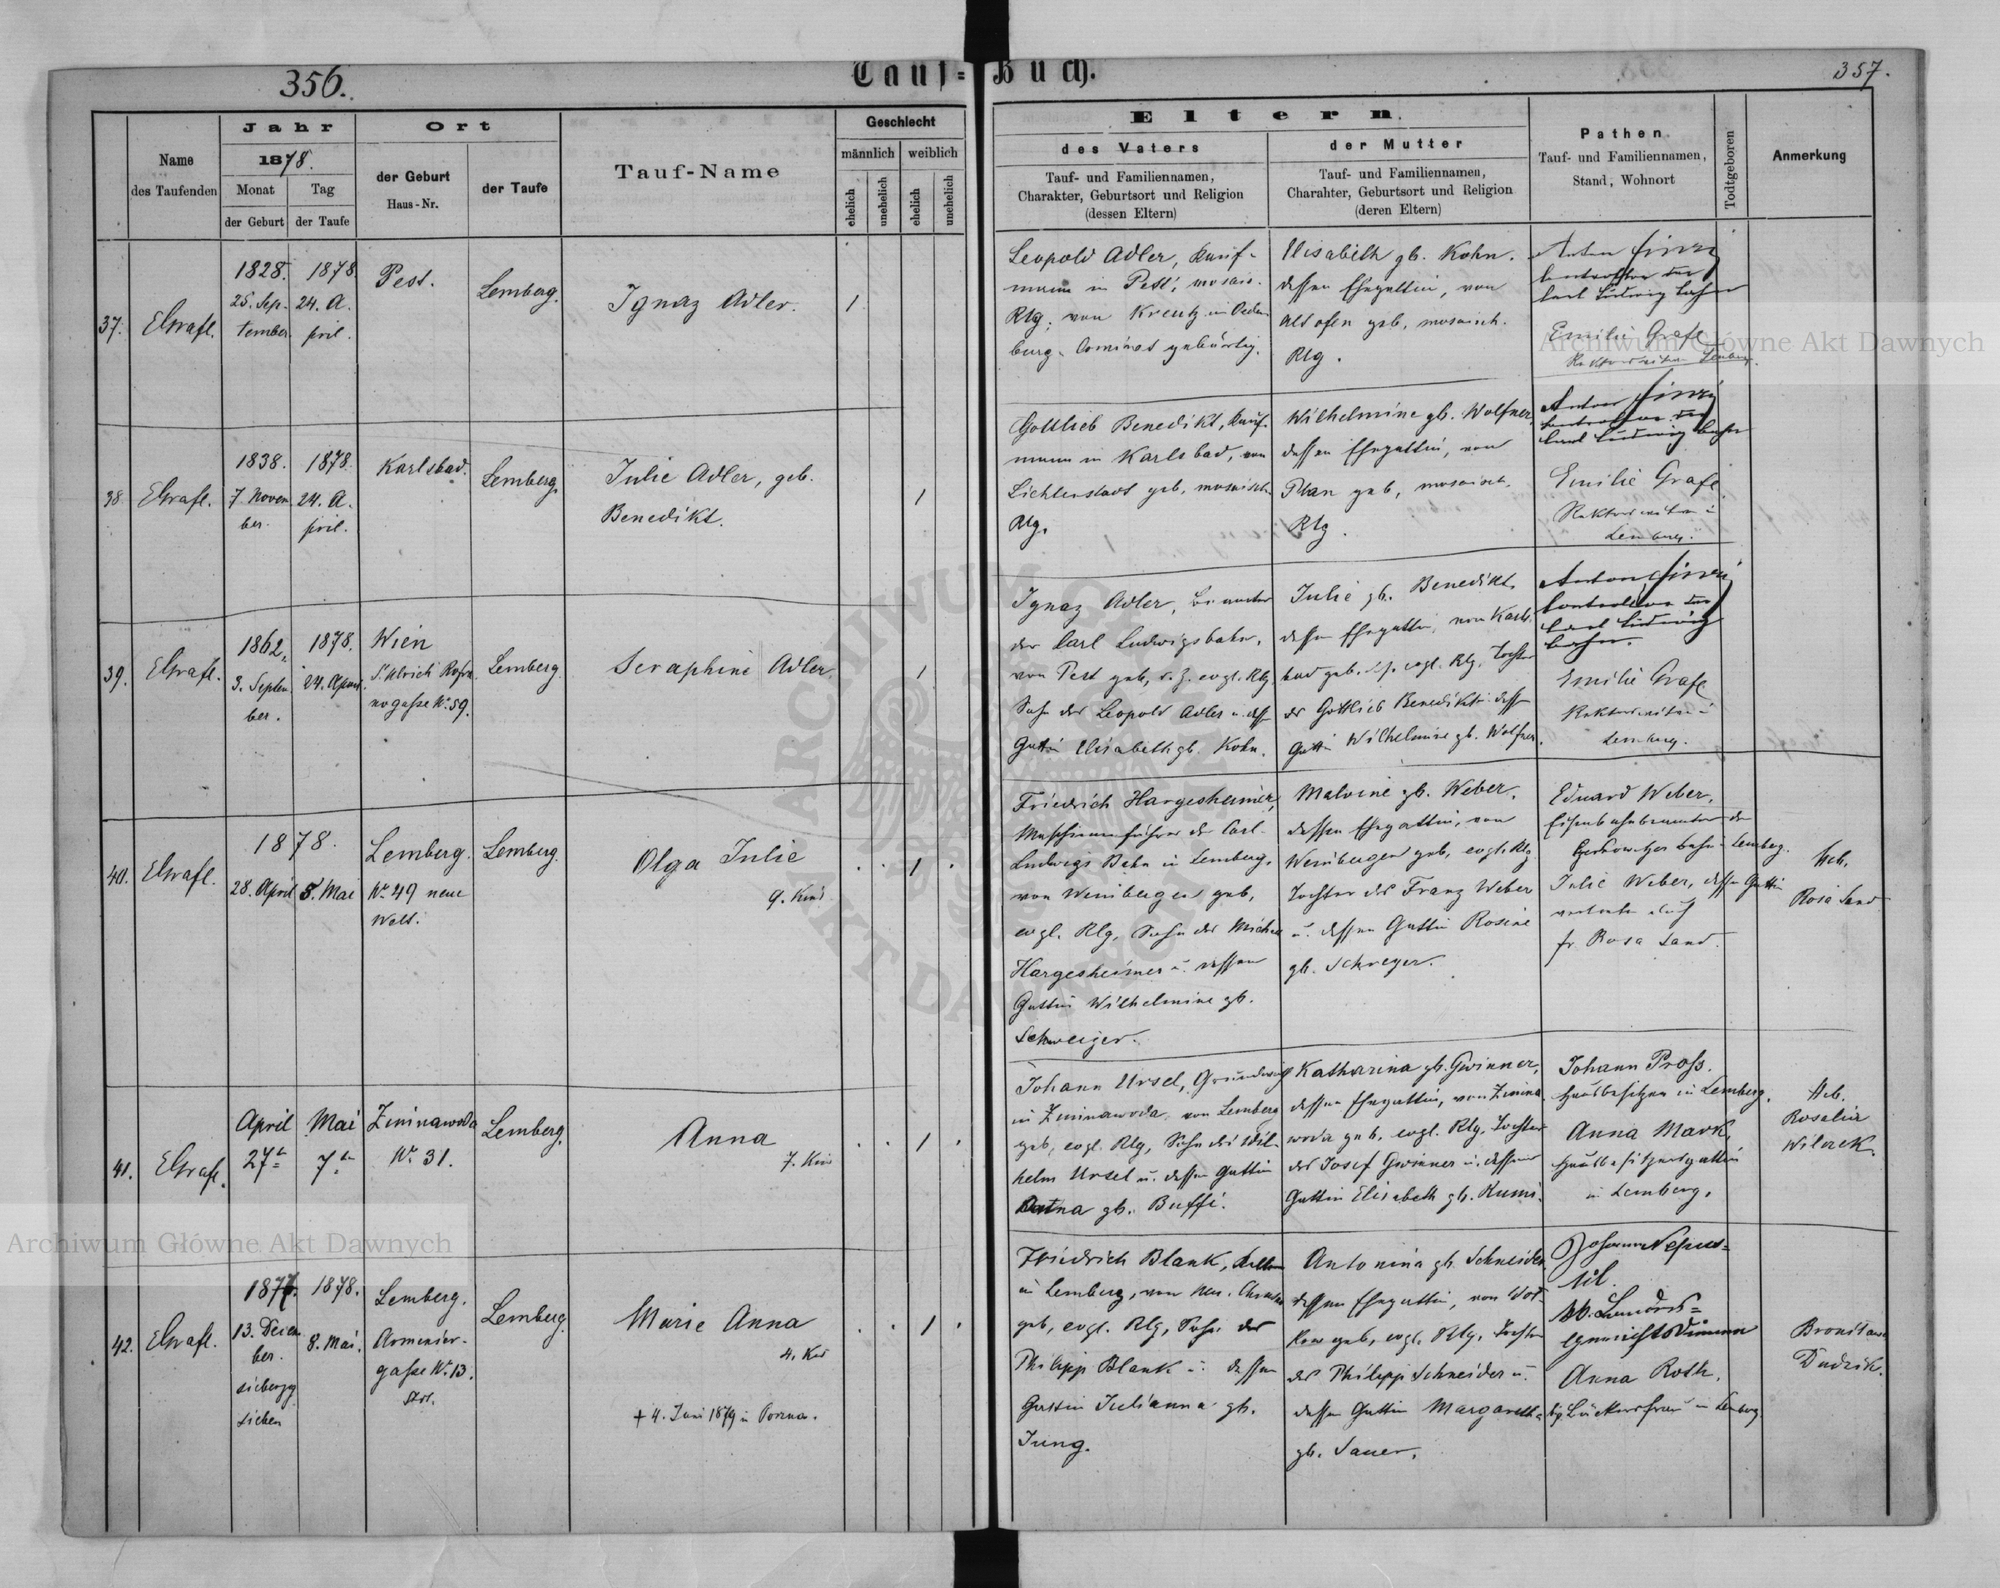 356.
Tauf-Buch.
357.
Name
des Taufenden
Jahr
1878.
Monat
der Geburt
Tag
der Taufe
Ort
der Geburt
Haus-Nr.
der Taufe
Tauf-Name
Geschlecht
männlich
weiblich
ehelich
unehelich
ehelich
unehelich
Eltern.
des Vaters
Tauf- und Familiennamen,
Charakter, Geburtsort und Religion
(dessen Eltern)
der Mutter
Tauf- und Familiennamen,
Charahter, Geburtsort und Religion
(deren Eltern)
Pathen
Tauf- und Familiennamen,
Stand, Wohnort
Todtgeboren
Anmerkung
37.
EGrafl.
1828.
25. Sep-
tember
1878.
24. A-
pril.
Pest.
Lemberg.
Ignaz Adler.
1
Leopold Adler, Kauf-
mann in Pest, mosais.
Rlg; von Kreutz in Oeden-
burg. Comitat gebürtig.
Elisabeth gb. Kohn.
dessen Ehegattin, von
Altofen geb, mosaisch.
Rlg.
Anton
Carl Ludwig
Emilie Grafl
Lemberg.
38.
EGrafl.
1838.
7. Novem
ber.
1878.
24. A-
pril.
Karlsbad.
Lemberg.
Julie Adler, geb.
Benedikt.
1
Gottlieb Benedikt, Kauf-
mann in Karlsbad, von
Lichtenstadt geb, mosaisch.
Rlg.
Wilhelmine gb. Wolfner,
dessen Ehegattin, von
Plan geb, mosaisch.
Rlg.
Anton
Carl Ludwig
Emilie Grafl.
Lemberg.
39.
EGrafl.
1862.
3. Septem
ber.
1878.
24. April.
Wien
St Ulrich
nogasse No 59.
Lemberg.
Seraphine Adler
1
Ignaz Adler, Beamter
der Carl Ludwigsbahn,
von Pest geb, evgl. Rlg.
Sohn des Leopold Adler u. dess
Gattin Elisabeth gb. Kohn.
Julie gb. Benedikt,
dessen Ehegattin, von Karls
bad geb, evgl. Rlg. Tochter
des Gottlieb Benedikt u. dess
Gattin Wilhelmine gb. Wolfner.
Anton
Carl Ludwig
Emilie Grafl
Lemberg.
40.
EGrafl.
1878.
28. April
5. Mai
Lemberg.
No 49 neue
Welt.
Lemberg.
Olga Julie
9. Kind
1
Friedrich Hargesheimer,
Maschinenführer der Carl-
Ludwigs Bahn in Lemberg,
von Weinbergen geb,
evgl. Rlg, Sohn des Michael
Hargesheimer u. dessen
Gattin Wilhelmine gb.
Schweizer.
Malvine gb. Weber,
dessen Ehegattin, von
Weinbergen geb, evgl. Rlg
Tochter des Franz Weber
u. dessen Gattin Rosine
gb. Schreyer.
Eduard Weber,
Eisenbahnbeamter der
Czerkowitzer bahn in Lemberg.
Julie Weber, dessen Gattin
vertreten durch
fr. Rosa Sand.
Heb.
Rosa Sand
41.
EGrafl.
April
27
Mai
7
Zimnawoda
No 31.
Lemberg.
Anna
7. Kind
1
Johann Ursel, Grundwirth
in Zimnawoda, von Lemberg
geb, evgl. Rlg, Sohn des Wil-
helm Ursel u. dessen Gattin
gb. Buffi.
Katharina gb. Gwinner,
dessen Ehegattin, von Zimna
woda geb, evgl. Rlg, Tochter
des Josef Gwinner u. dessen
Gattin Elisabeth gb. Kumi.
Johann Pross.
Hausbesitzer in Lemberg,
Anna Mark,
Hausbesitzersgattin
in Lemberg.
Heb.
Rosalia
Wilczek.
42.
EGrafl.
1877.
13. Dezem
ber.
siebzig
sieben
1878.
8. Mai.
Lemberg.
Armenier-
gasse No 13.
Lemberg.
Marie Anna
4. Kind
+ 4. Juni 1879 in
1
Friedrich Blank, Kellner
in Lemberg, von
geb, evgl. Rlg, Sohn des
Philipp Blank u. dessen
Gattin Julianna gb.
Jung.
Antonina gb. Schneider
dessen Ehegattin, von
geb, evgl. Rlg, Tochter
des Philipp Schneider u.
dessen Gattin Margareth-
gb. Sauer.
Anna Roth,
Bäckersfrau in Lemberg
Bronislawa
Dudzik.
Archiwum Główne Akt Dawnych
Archiwum Główne Akt Dawnych
ARCHIWUM GŁÓWNE AKT DAWNYCH